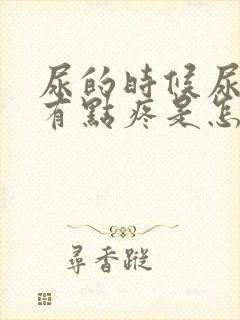 尿的時候尿
有點疼是怎
尋香蹤